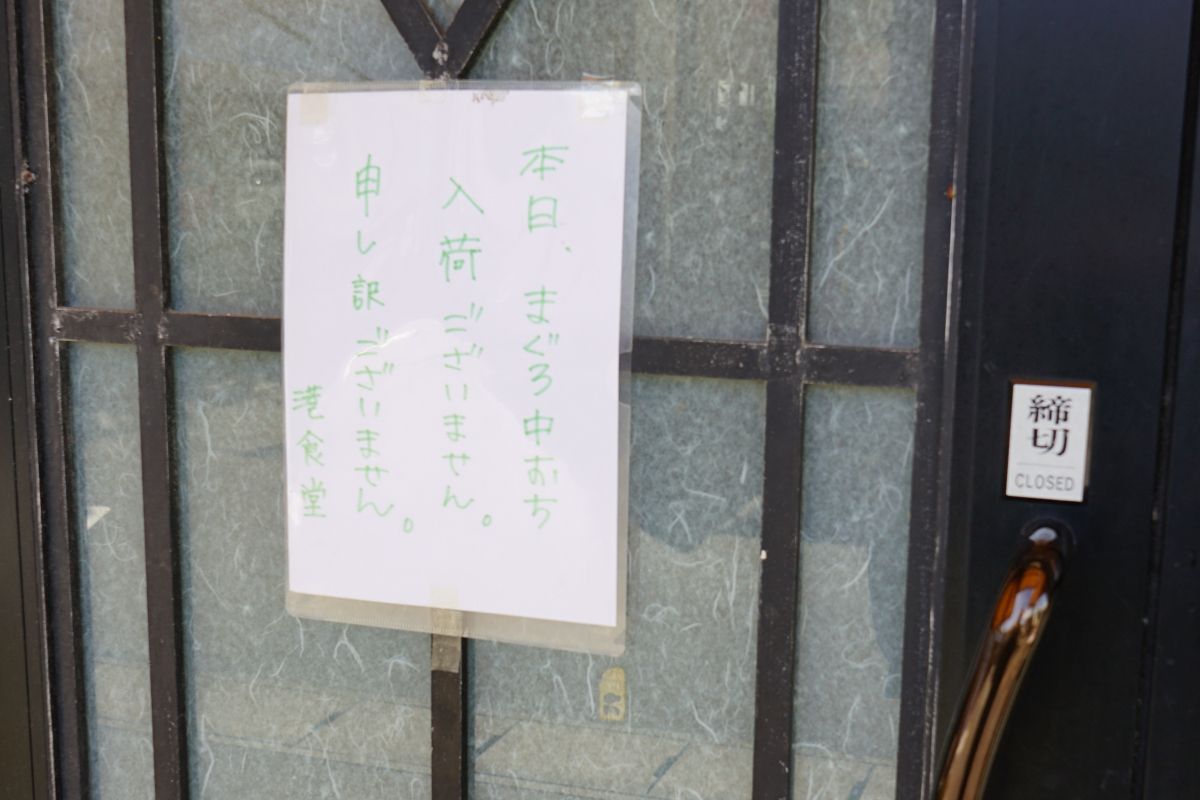 本日、まぐろ中おち
入荷ございません。
申し訳ございません。
港食堂
締切
CLOSED